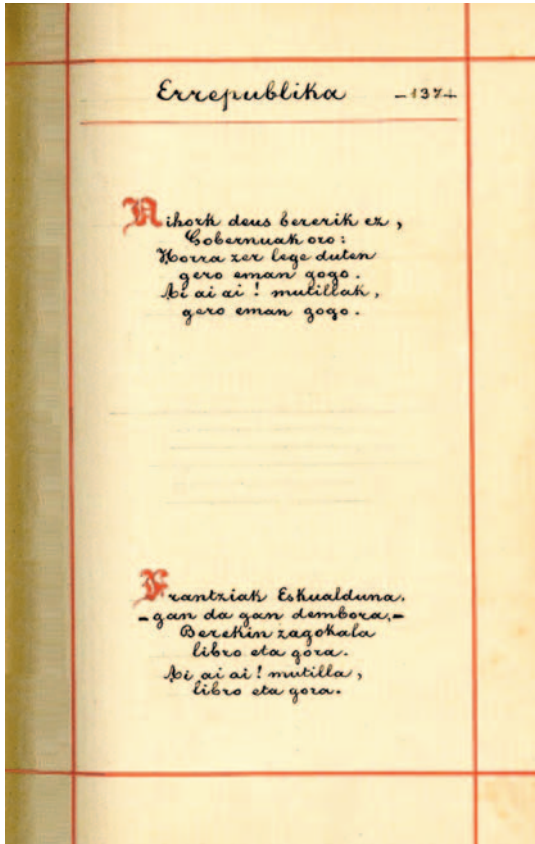 Errepublika -137-
Nihork deus bererik ez,
Gobernuak oro:
Horra zer lege duten
gero eman gogo.
Ai ai ai! mutillak,
gero eman gogo.
Frantziak Eskualduna.
-gan da gan dembora,-
Berekin zagokala
libro eta gora.
Ai ai ai! mutilla,
libro eta gora.